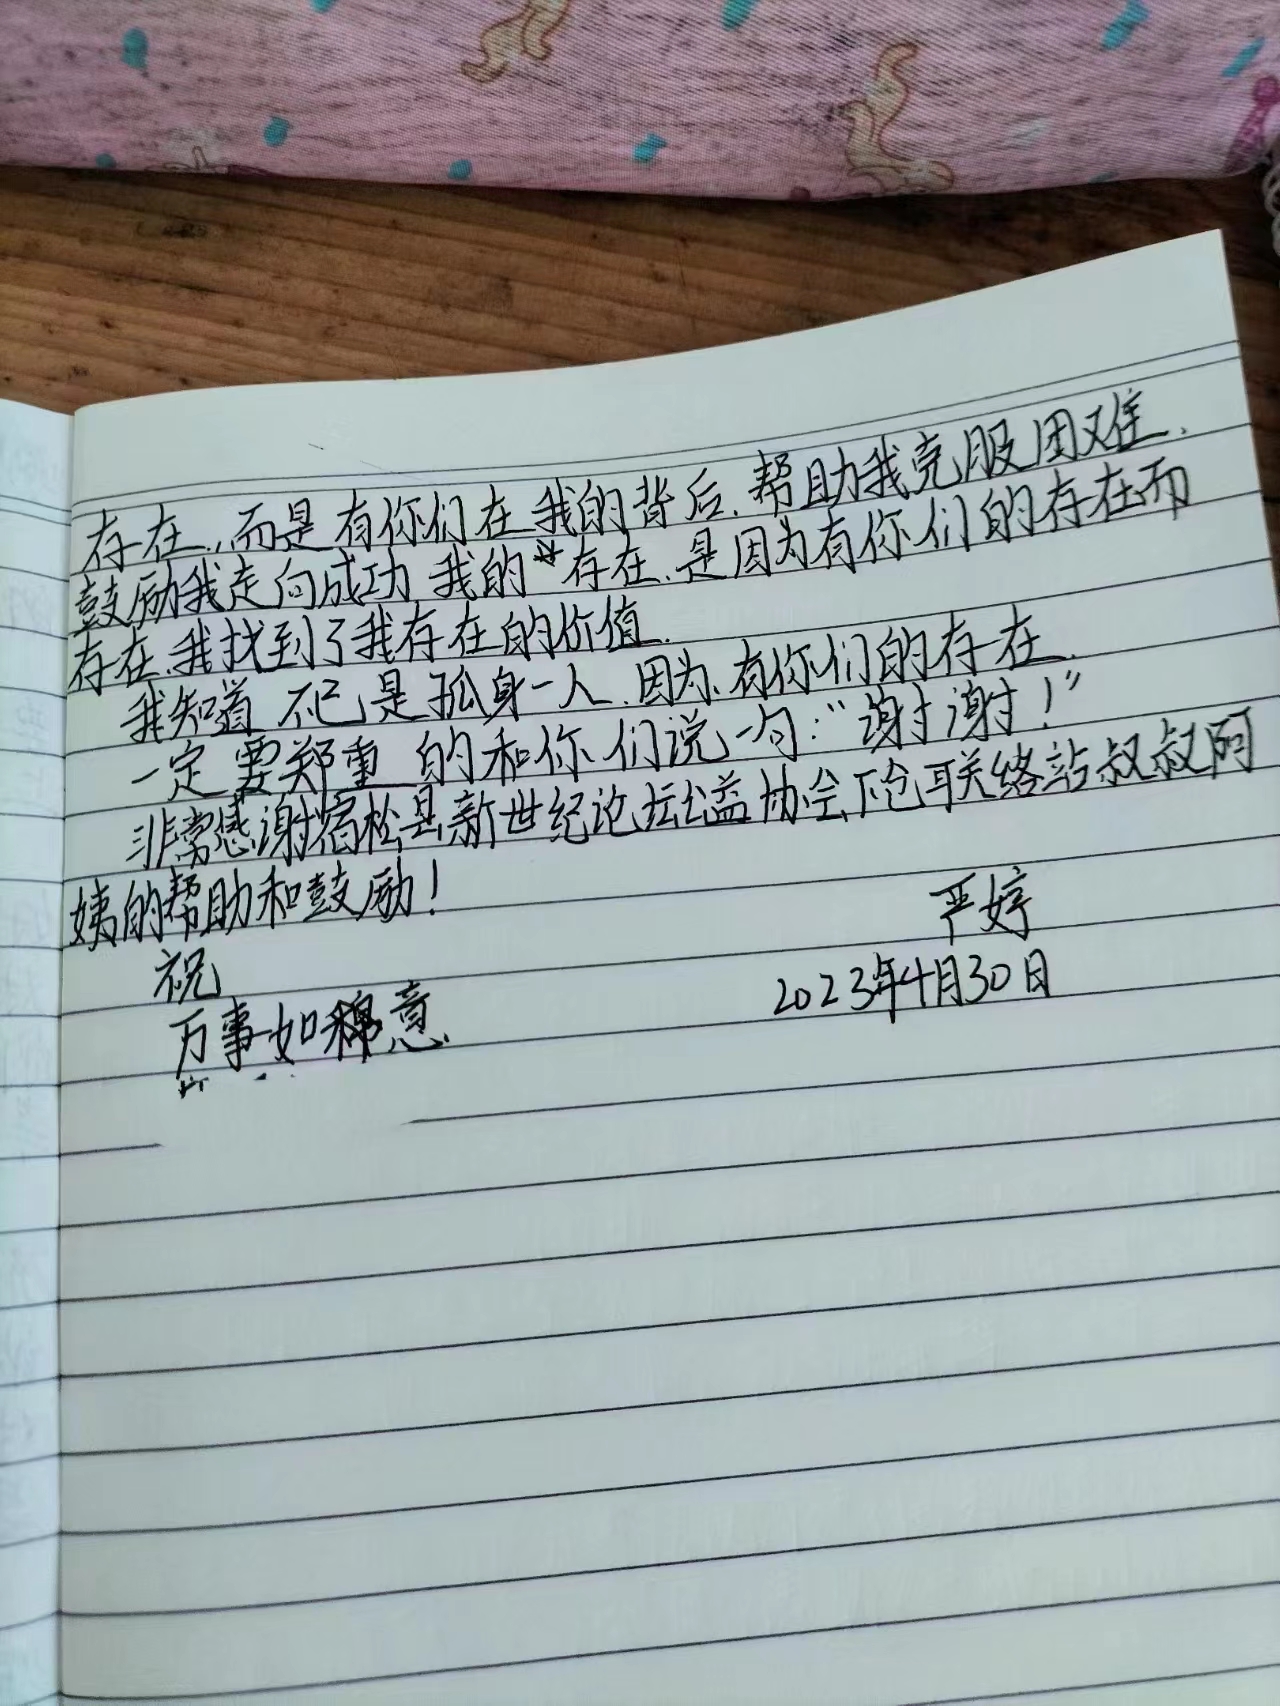 存在,而是有你们在我的背后,帮助我克服困难.
鼓励我走向成功 我的存在,是因为有你们的存在而
存在,我找到了我存在的价值.
我知道 不己是孤身一人,因为,有你们的存在.
一定要郑重的和你们说一句:“谢谢!”
非常感谢宿松县新世纪论坛公益协会下仓联络站叔叔阿
姨的帮助和鼓励!
严婷
祝
2023年4月30日
万事如意